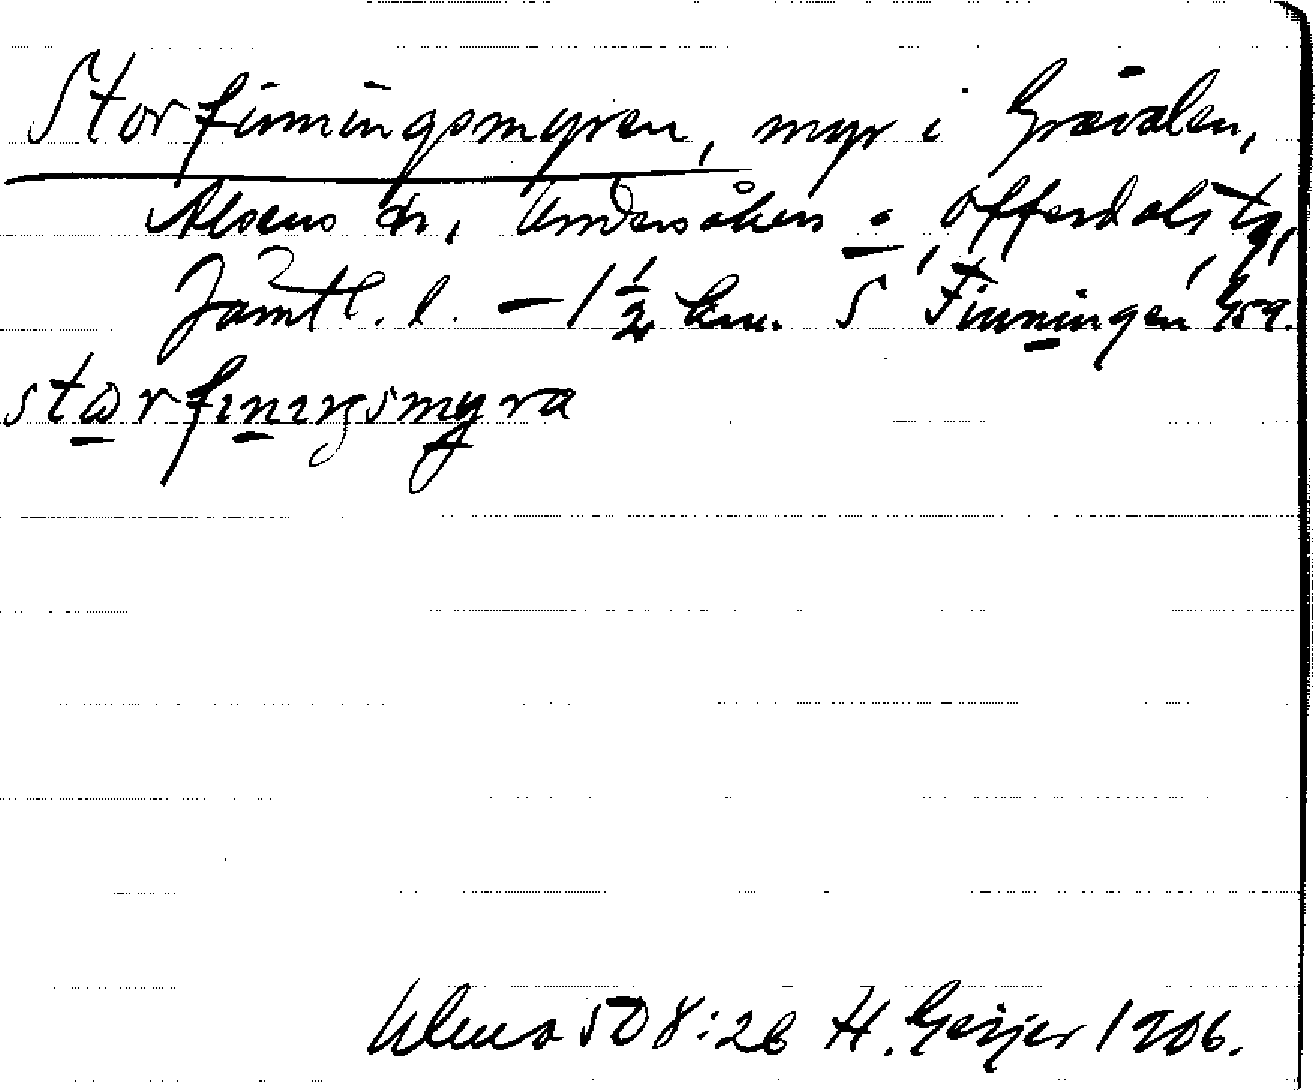 Storfinningsmyren, myr i Grävalen,
Alsens sn, Undersåkers o. Offerdals tg,
Jämtl. l. – 1 ½ km. S Finningen, 459.
storfınıŋsmyra
508:26 H. Geijer 1906.